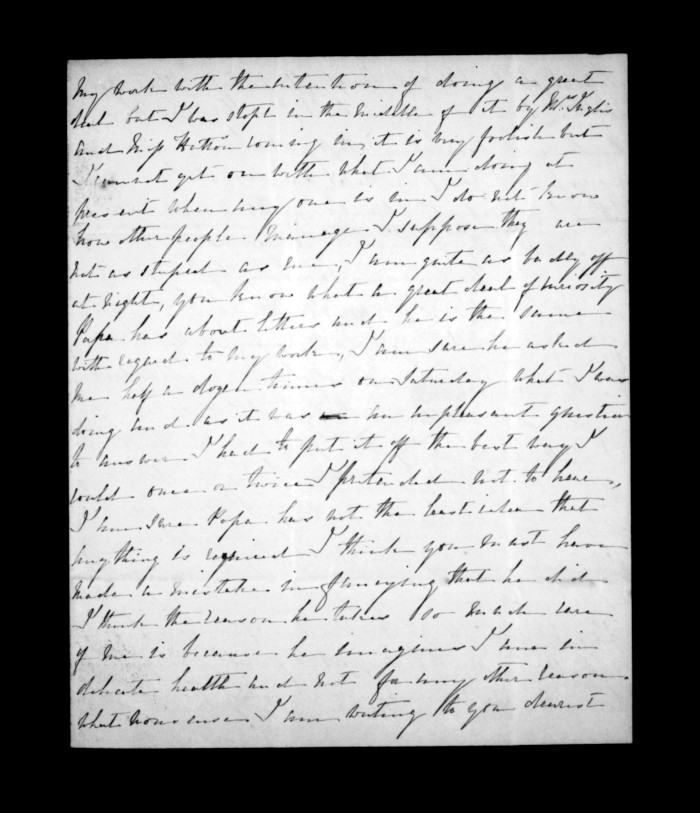 my work with the intention of doing a great
deal but I was stopt in the middle of it by Mr. Inglis
and Miss Hutton coming in, it is very foolish but
I cannot get on with what I am doing at
present when any one is in I do not know
how other people manage I suppose they are
not as stupid as me, I am quite as badly off
at night, you know what a great deal of curiosity
Papa has about letters and he is the same
with regard to my work, I am sure he asked
me half a dozen times on Saturday what I was
doing and as it was an unpleasant question
to answer I had to put it off the best way I
could once or twice I pretended not to hear,
I am sure Papa has not the least idea that
anything is required I think you must have
made a mistake in fancying that he did
I think the reason he takes so much care
of me is because he imagines I am in
delicate health and not for any other reason
what nonsense I am writing to you dearest